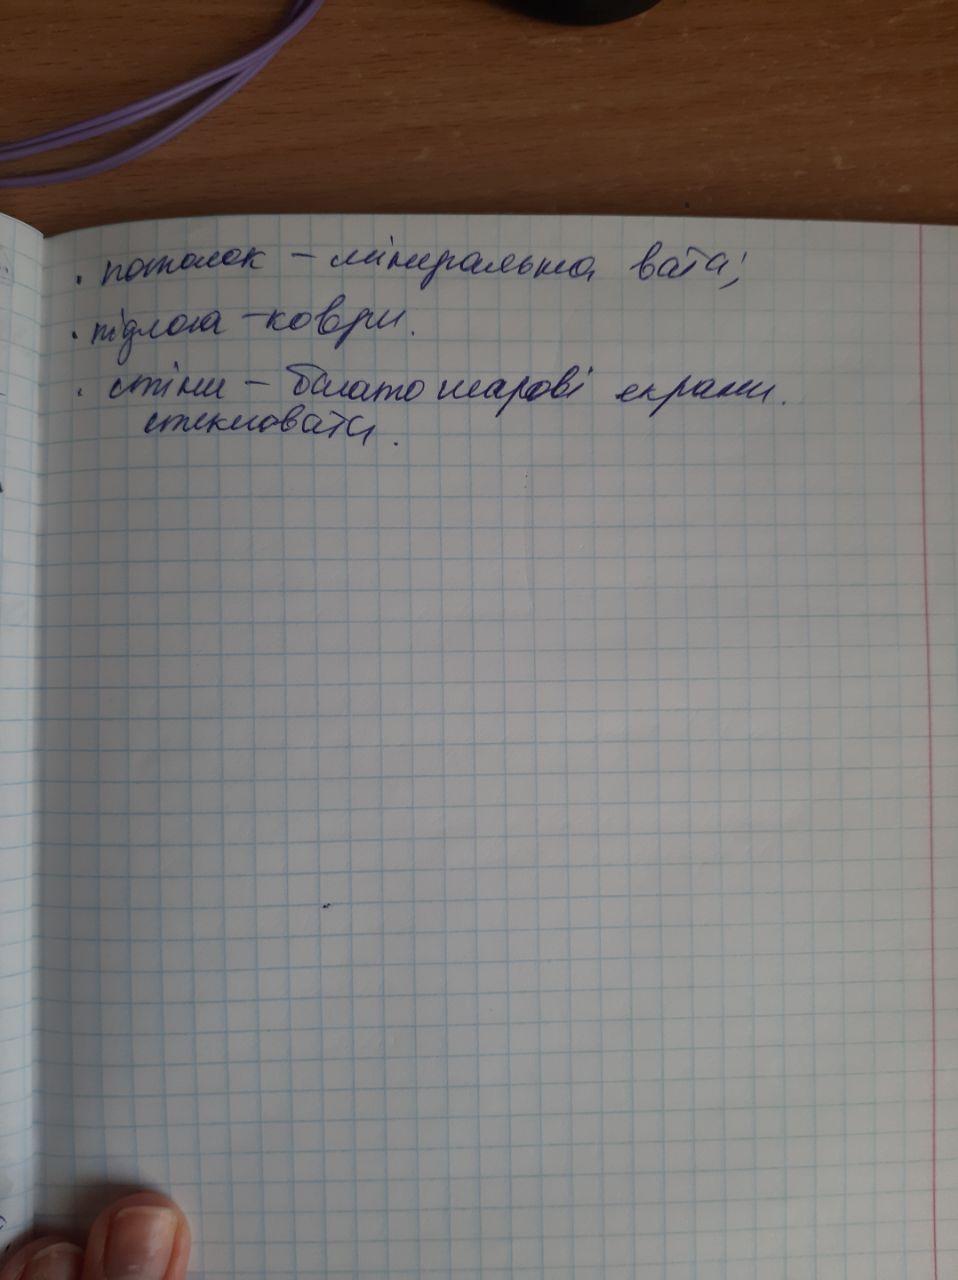 . потолок – мінеральна вата;
. підлога – коври.
. стіни – багатошарові екрани.
стекловата.